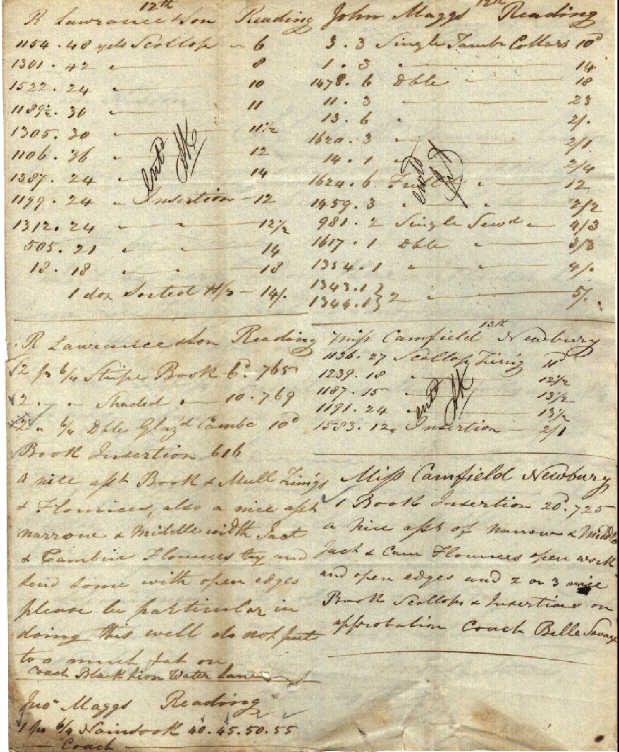 12th
R Lawrance & Son Reading
1154 . 48 yds Scollop - 6
1301 . 42 " 8
1522 . 24 " 10
1189½ . 30 " 11
1305 . 30 " 11½
1106 . 36 " 12
1387 . 24 " 14
1199 . 24 " Insertion - 12
1312 . 24 " " 12½
505 . 21 " " 14
18 . 18 " " 18
1 doz Sorted H/s - 14/.
entd
12th
John Maggs Reading
3 . 3 Single Camb Collars 10d
1 . 3 " 14
1478 . 6 Dble " 18
11 . 3 " 23
13 . 6 " 2/.
1620 . 3 " 2/1
14 . 1 " 2/4
1624 . 6 " 12
1459 . 3 " 2/2
981 . 2 Single Sewd " 4/3
1617 . 1 Dble " 3/3
1354 . 1 " 4/.
1343 . 1 }
1344 . 1 } 2 " 5/.
entd
R Lawrance & Son Reading
12 ps 6/4 Stripe Book 6d. 765
2 " " Shaded " 10 . 769
2 " 6/4 Dble Glazd Cambc 10d
Book Insertion 616
a nice asst Book & Mull Tring's
& Flounces, also a nice asst
narrow & middle width Jact
& Cambric Flounces try and
send some with open edges
please be particular in
doing this well do not put
to a much fat on
Coach Black Lion Water Lane
Jno Maggs Reading
1 ps 6/4 Nainsook 40. 45. 50. 55
Coach
13th
Miss Camfield Newbury
1136 . 27 Scollop Tring 11d
1239 . 18 " 12½
1187 . 15 " 13½
1191 . 24 " 13½
1583 . 12 " Insertion - 2/1
entd
Miss Camfield Newbury
1 Book Insertion 20d. 725
a nice asst of narrow & Middle
Jact & Cam Flounces open work
and open edges and 2 or 3 nice
Book Scollops & Insertions on
approbation Coach Belle Savage